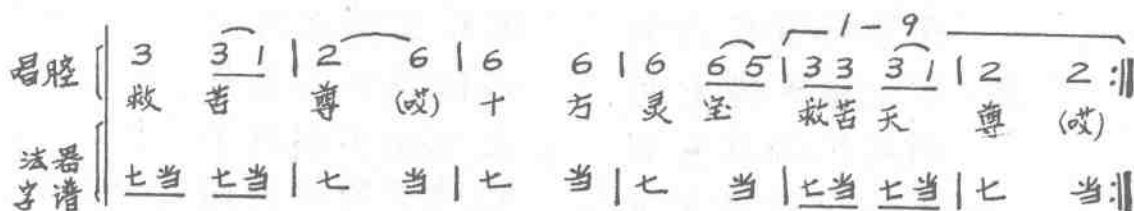 1 - 9
唱腔 3 3 1 | 2 6 | 6 6 | 6 6 5 | 3 3 3 1 | 2 2 :‖
救 苦 尊 (哎) 十 方 灵 宝 救苦 天 尊 (哎)
法器字谱 七当 七当 | 七 当 | 七 当 | 七 当 | 七当 七当 | 七 当 :‖